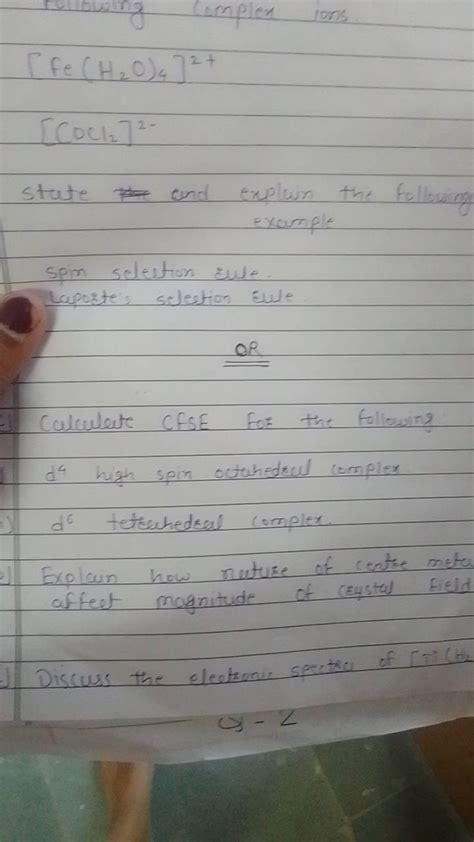 Following complex ions.
[Fe(H₂O)₄]²⁺
[COCl₂]²⁻
State and explain the following
example
Spin selection rule.
Laporte's selection rule
OR
Calculate CFSE For the following
d⁴ high spin octahedral complex
d⁶ tetrahedral complex.
Explain how nature of centre meta
affect magnitude of crystal Field
Discuss the electronic spectra of [Ti(H₂